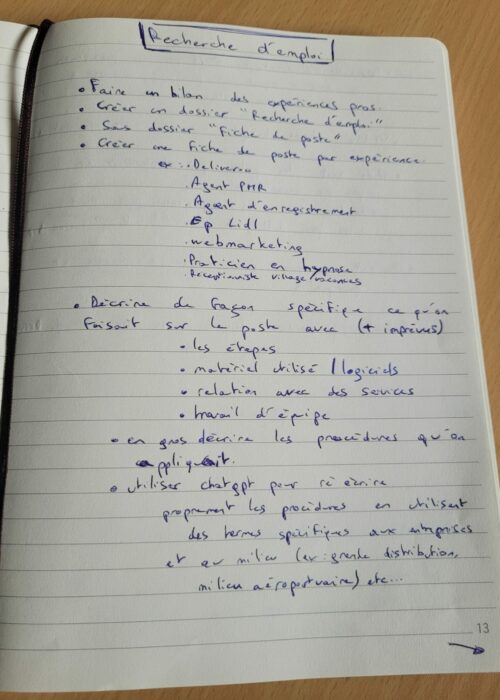 Recherche d'emploi
• Faire un bilan des expériences pros.
• Créer un dossier "Recherche d'emploi"
• Sous dossier "Fiche de poste"
• Créer une fiche de poste par expérience
. Deliveroo
. Agent PMR
. Agent d'enregistrement
. Ep Lidl
. webmarketing
. Praticien en hypnose
. Réceptionniste village/vacances
• Décrire de façon spécifique ce qu'on
faisait sur le poste avec (+ imprévus)
• les étapes
• matériel utilisé / logiciels
• relation avec des services
• travail d'équipe
• en gros décrire les procédures qu'on
appliquait.
• utiliser chatgpt pour réécrire
proprement les procédures en utilisant
des termes spécifiques aux entreprises
et au milieu (ex: grande distribution,
milieu aéroportuaire) etc...
13